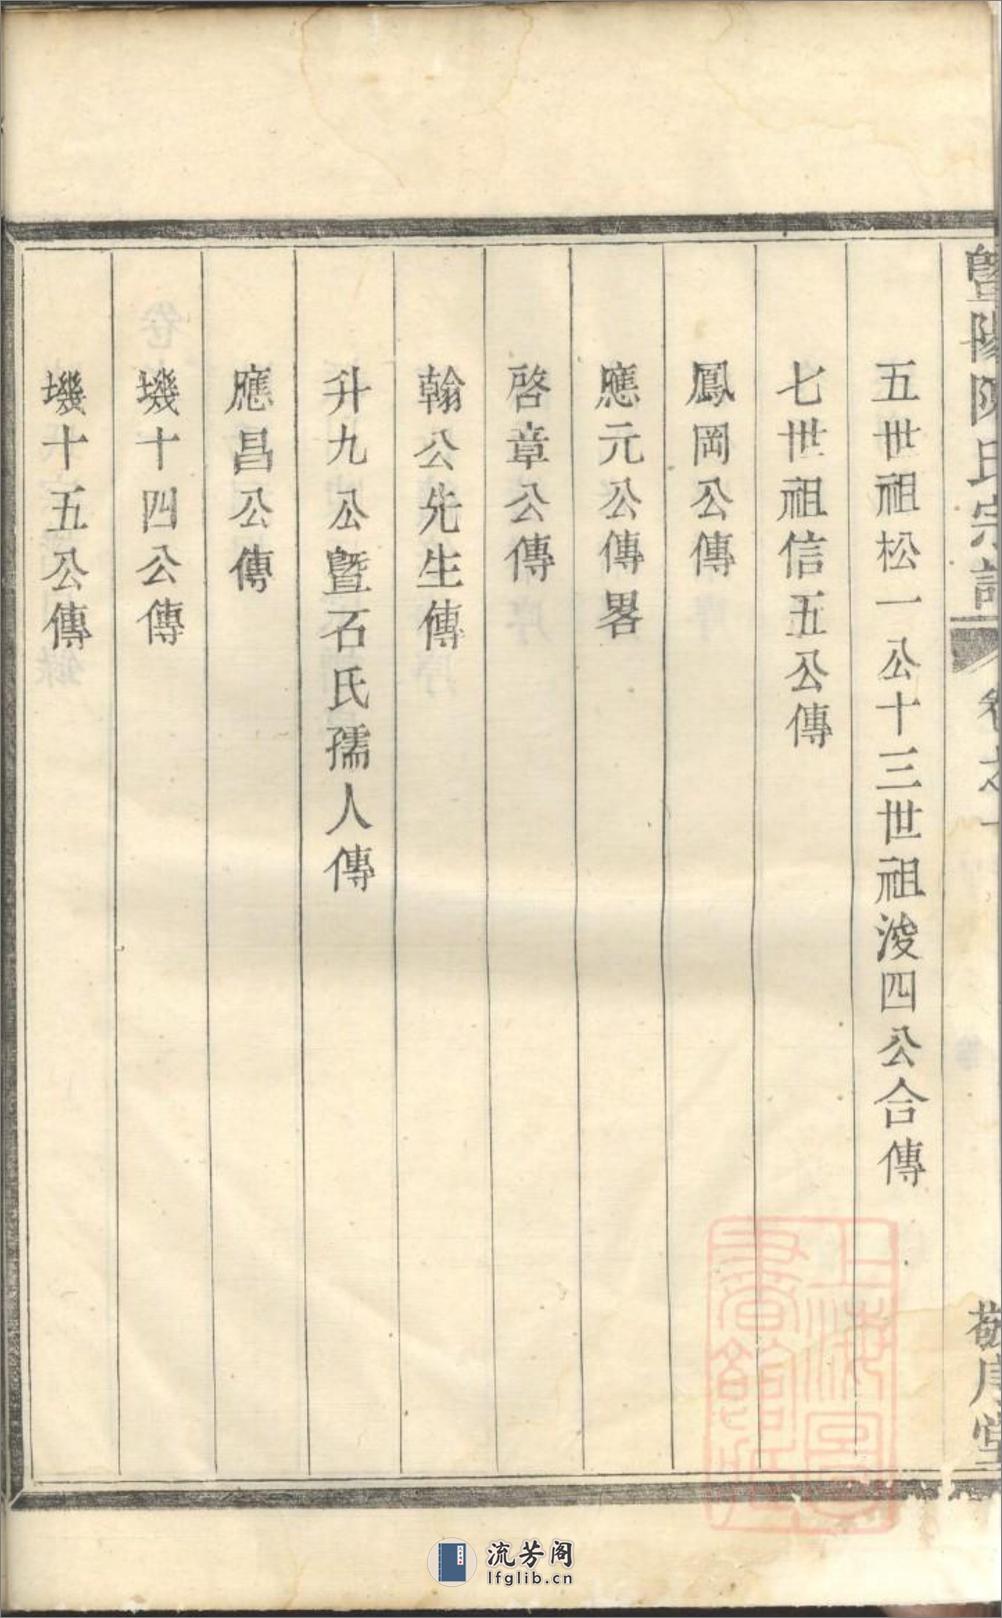 暨陽陳氏宗譜 卷之一 敬序堂
五世祖松一公十三世祖浚四公合傳
七世祖信五公傳
鳳岡公傳
應元公傳畧
啓章公傳
翰公先生傳
升九公暨石氏孺人傳
應昌公傳
璣十四公傳
璣十五公傳
流芳阁
lfglib.cn